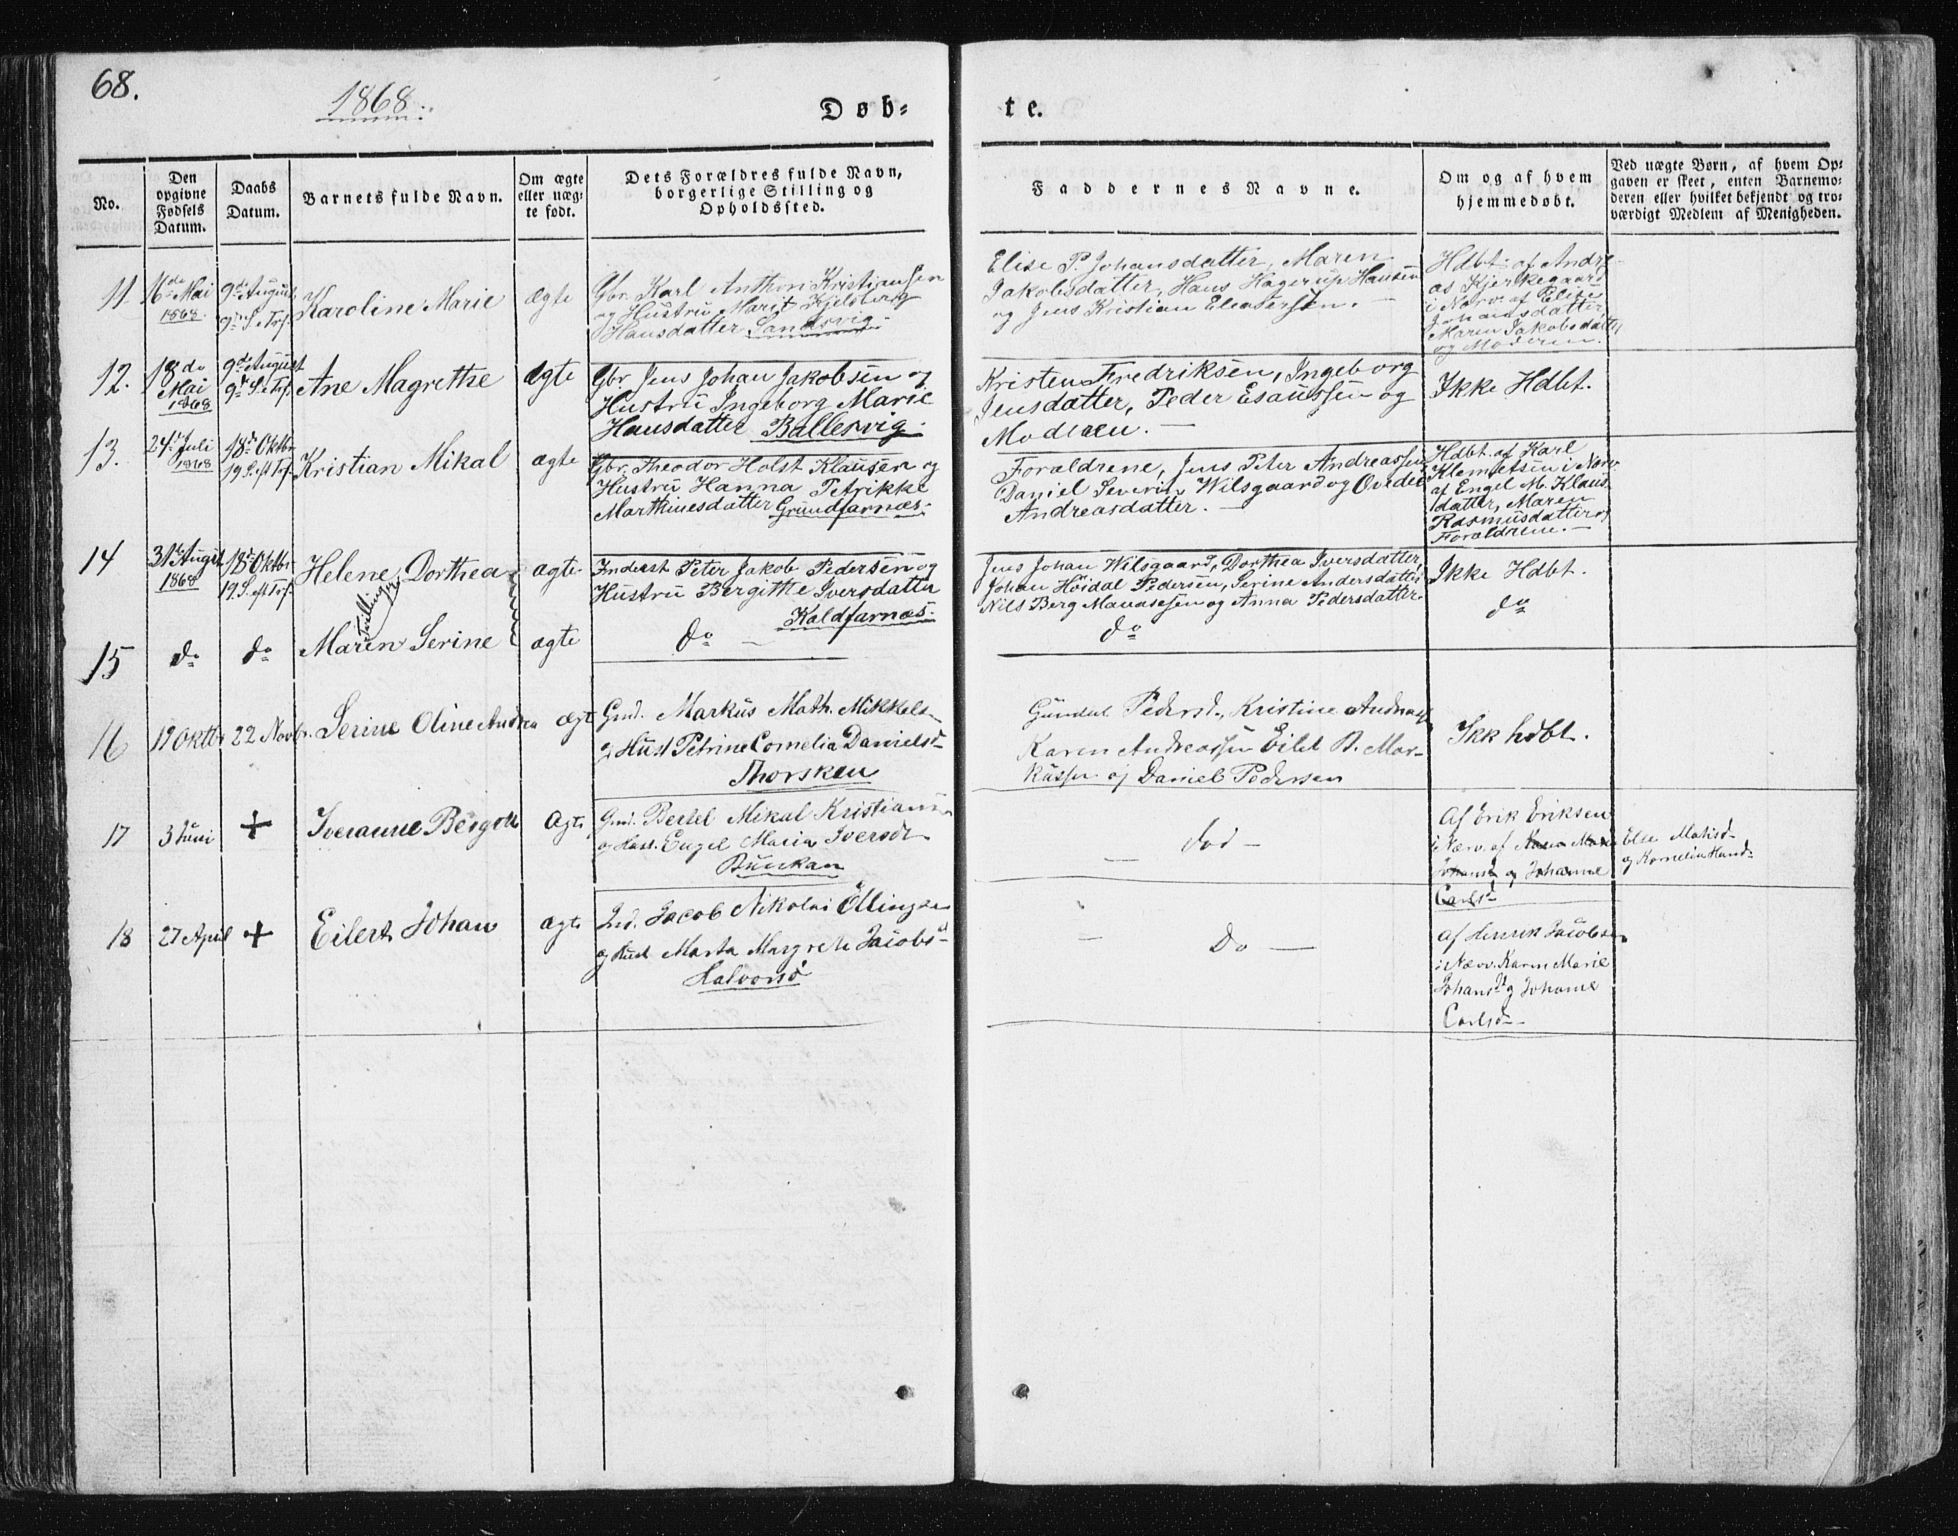 68.
1868.
Døb-
te.
No.
Den opgivne Fødsels Datum.
Daabs Datum.
Barnets fulde Navn.
Om ægte eller uægte født.
Dets Forældres fulde Navn, borgerlige Stilling og Opholdssted.
Faddernes Navne.
Om og af hvem hjemmedøbt.
Ved uægte Børn, af hvem Opgaven er skeet, enten Barnemoderen eller hvilket bekjendt og troværdigt Medlem af Menigheden.
11.
16de Mai
1868.
9de August
9n S. e Trf.
Karoline Marie
ægte
Gbr. Karl Anthon Kristiansen
og Hustru Marit Kjelsberg
Hansdatter Sandsvig.
Elise P. Johansdatter, Maren
Jakobsdatter, Hans Hagerup Hansen
og Jens Kristian Eleasersen.
Hdbt. af Andre-
as Kjerkegaard
i Nærv. af Elise
Johansdatter,
Maren Jakobsdatter
og Moderen.
12.
18de
Mai
1868
9de August
9n S. e Trf.
Ane Magrethe
ægte
Gbr. Jens Johan Jakobsen og
Hustru Ingeborg Marie
Hansdatter Ballesvig.
Kristen Fredriksen, Ingeborg
Jensdatter, Peder Esaussen og
Moderen.
Ikke Hdbt.
13.
24de Juli
1868
18de Oktbr.
19 S. eft Trf.
Kristian Mikal
ægte
Gbr. Theodor Holst Klausen og
Hustru Hanna Petrikke
Marthinesdatter Grundfarnæs.
Forældrene, Jens Peter Andreassen,
Daniel Severin Wilsgaard og
Andreasdatter.
Hdbt. af Karl
Klemetsen i Nærv
af Engel M. Klaus-
datter, Maren
Rasmusdatter og
Forældrene.
14
31te August
1868
18de Oktbr.
19. S. eft Trf.
Helene Dorthea
Tvillinger
ægte
Inderst Peter Jakob Pedersen og
Hustru Bergitthe Iversdatter
Kaldfarnæs.
Jens Johan Wilsgaard, Dorthea Iversdatter,
Johan Höidal Pedersen, Serine Andersdatter
Nils Berg Manassesen og Anna Pedersdatter.
Ikke Hdbt.
15
do
do
Maren Serine
ægte
do
do
do
16
19 Oktbr
22 Novbr.
Serine Oline Andrea
ægt
Gmd. Markus Math. Mikkels-
og Hust Petrine Cornelia Danielsd
Thorsken
Gundel Pedersd., Kristine Andreass
Karen Andreassen Eilet B. Mar-
kussen og Daniel Pedersen
Ikk hdbt.
17
3 Juni
+
Iveranne Bergitte
ægte
Gmd. Bertel Mikal Kristiansen
og Hust. Engel Maria Iversdt
Bunkan
— død —
Af Erik Eriksen
i Nærv. af Karen Marie
Johansd og Johanne
Carlsd
Else Mathisd-
og Kornelia Hansd-
18
27 April
+
Eilert Johan
ægte
Ind. Jacob Nikolai Ellingsen
og Hust Marta Margreth Jacobsd
Halvorsö
— Do —
Af Henrik Jacobsen
i Nærv. Karen Marie
Johansd og Johanne
Carlsd